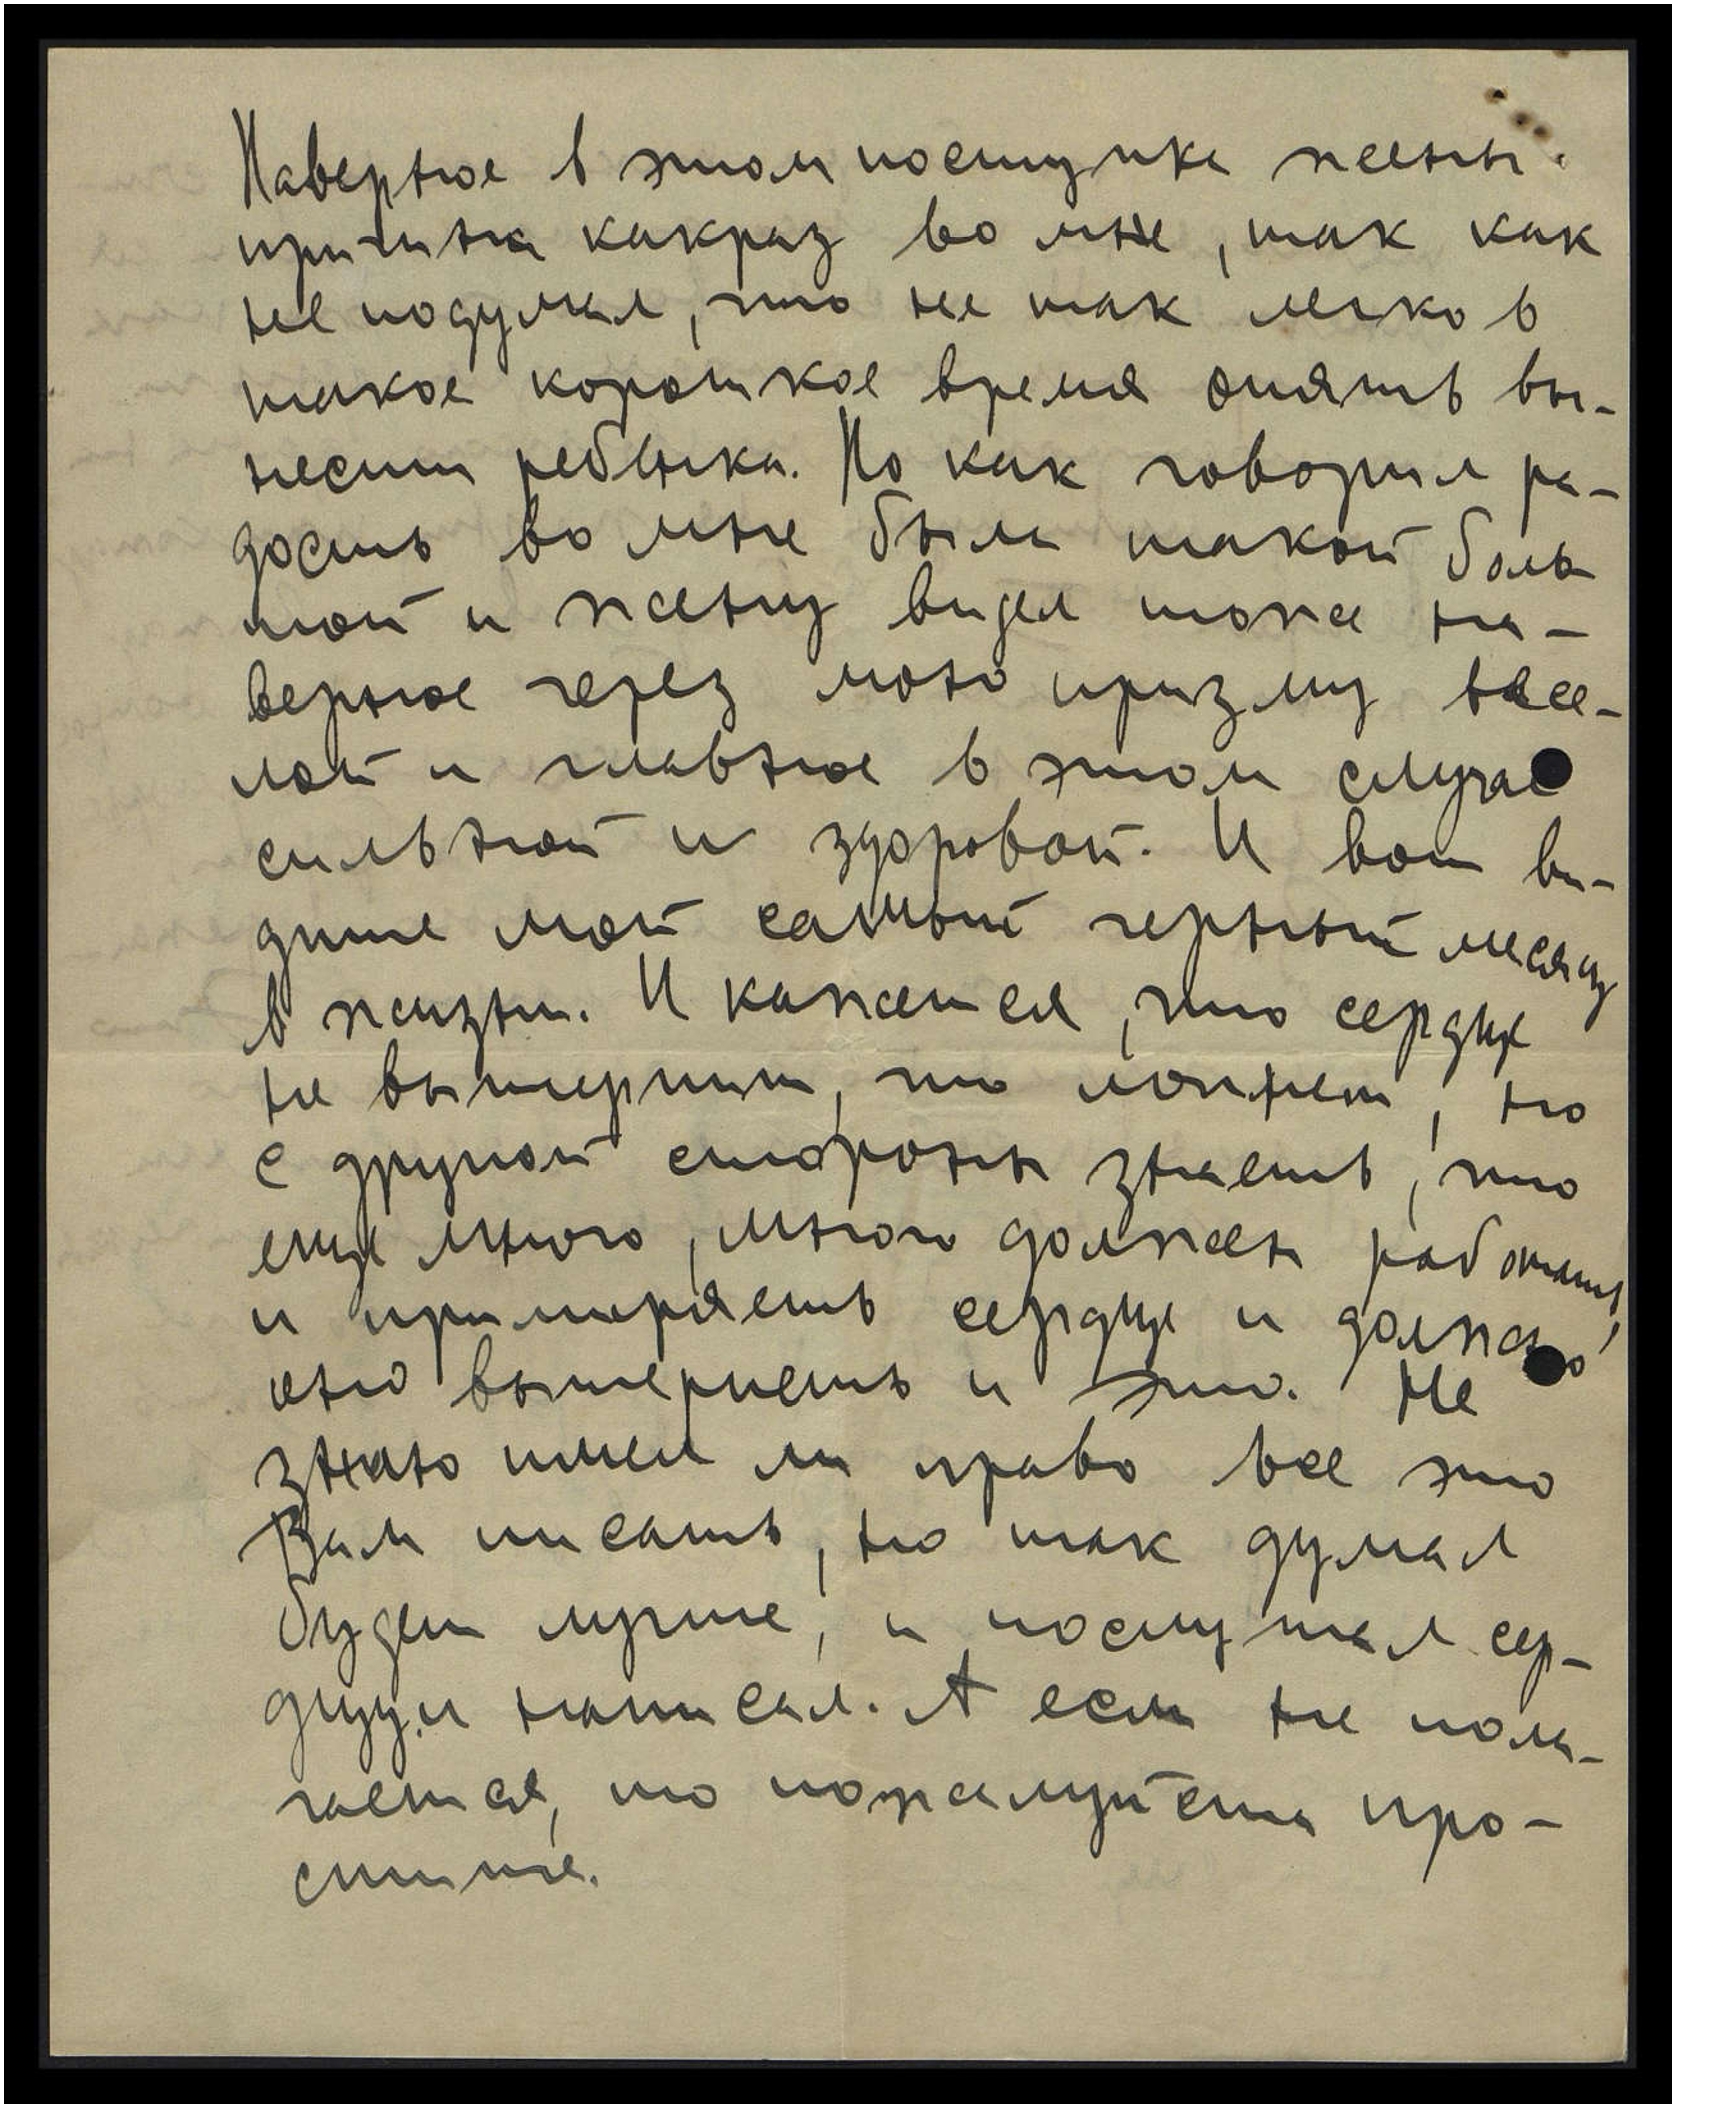 Наверное в этом поступке жены
причина какраз во мне, так как
не подумал, что не так легко в
такое короткое время опять вы-
нести ребенка. Но как говорил ра-
дость во мне была такой боль
шой и жену видел тоже на-
верное через мою призму весе-
лой и главное в этом случае
сильной и здоровой. И вот ви-
дите мой самый черный месяц
в жизни. И кажется, что сердце
не вытерпит, что лопнет, но
с другой стороны знаешь, что
еще много, много должен работать,
и примиряешь сердце и должно
оно вытерпеть и это. Не
знаю имел ли право все это
Вам писать, но так думал
будет лучше, и послушал сер-
дцу и написал. А если не пола-
гается, то пожалуйста про-
стите.